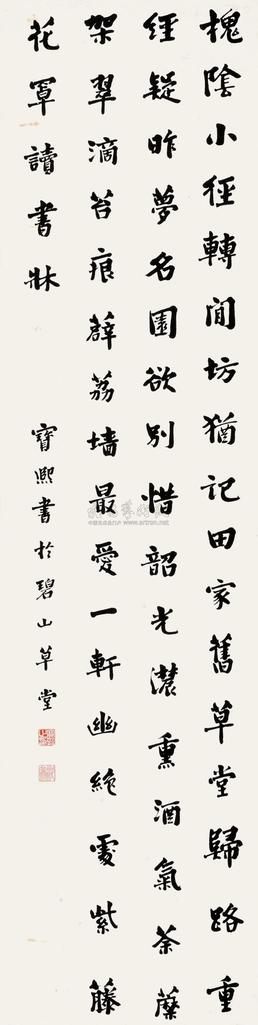 槐陰小徑轉閒坊猶記田家舊草堂歸路重
經疑昨夢名園欲別惜韶光濃熏酒氣荼蘼
架翠滴苔痕薜荔墙最愛一軒幽絶處紫藤
花罩讀書牀
寶熙書於碧山草堂